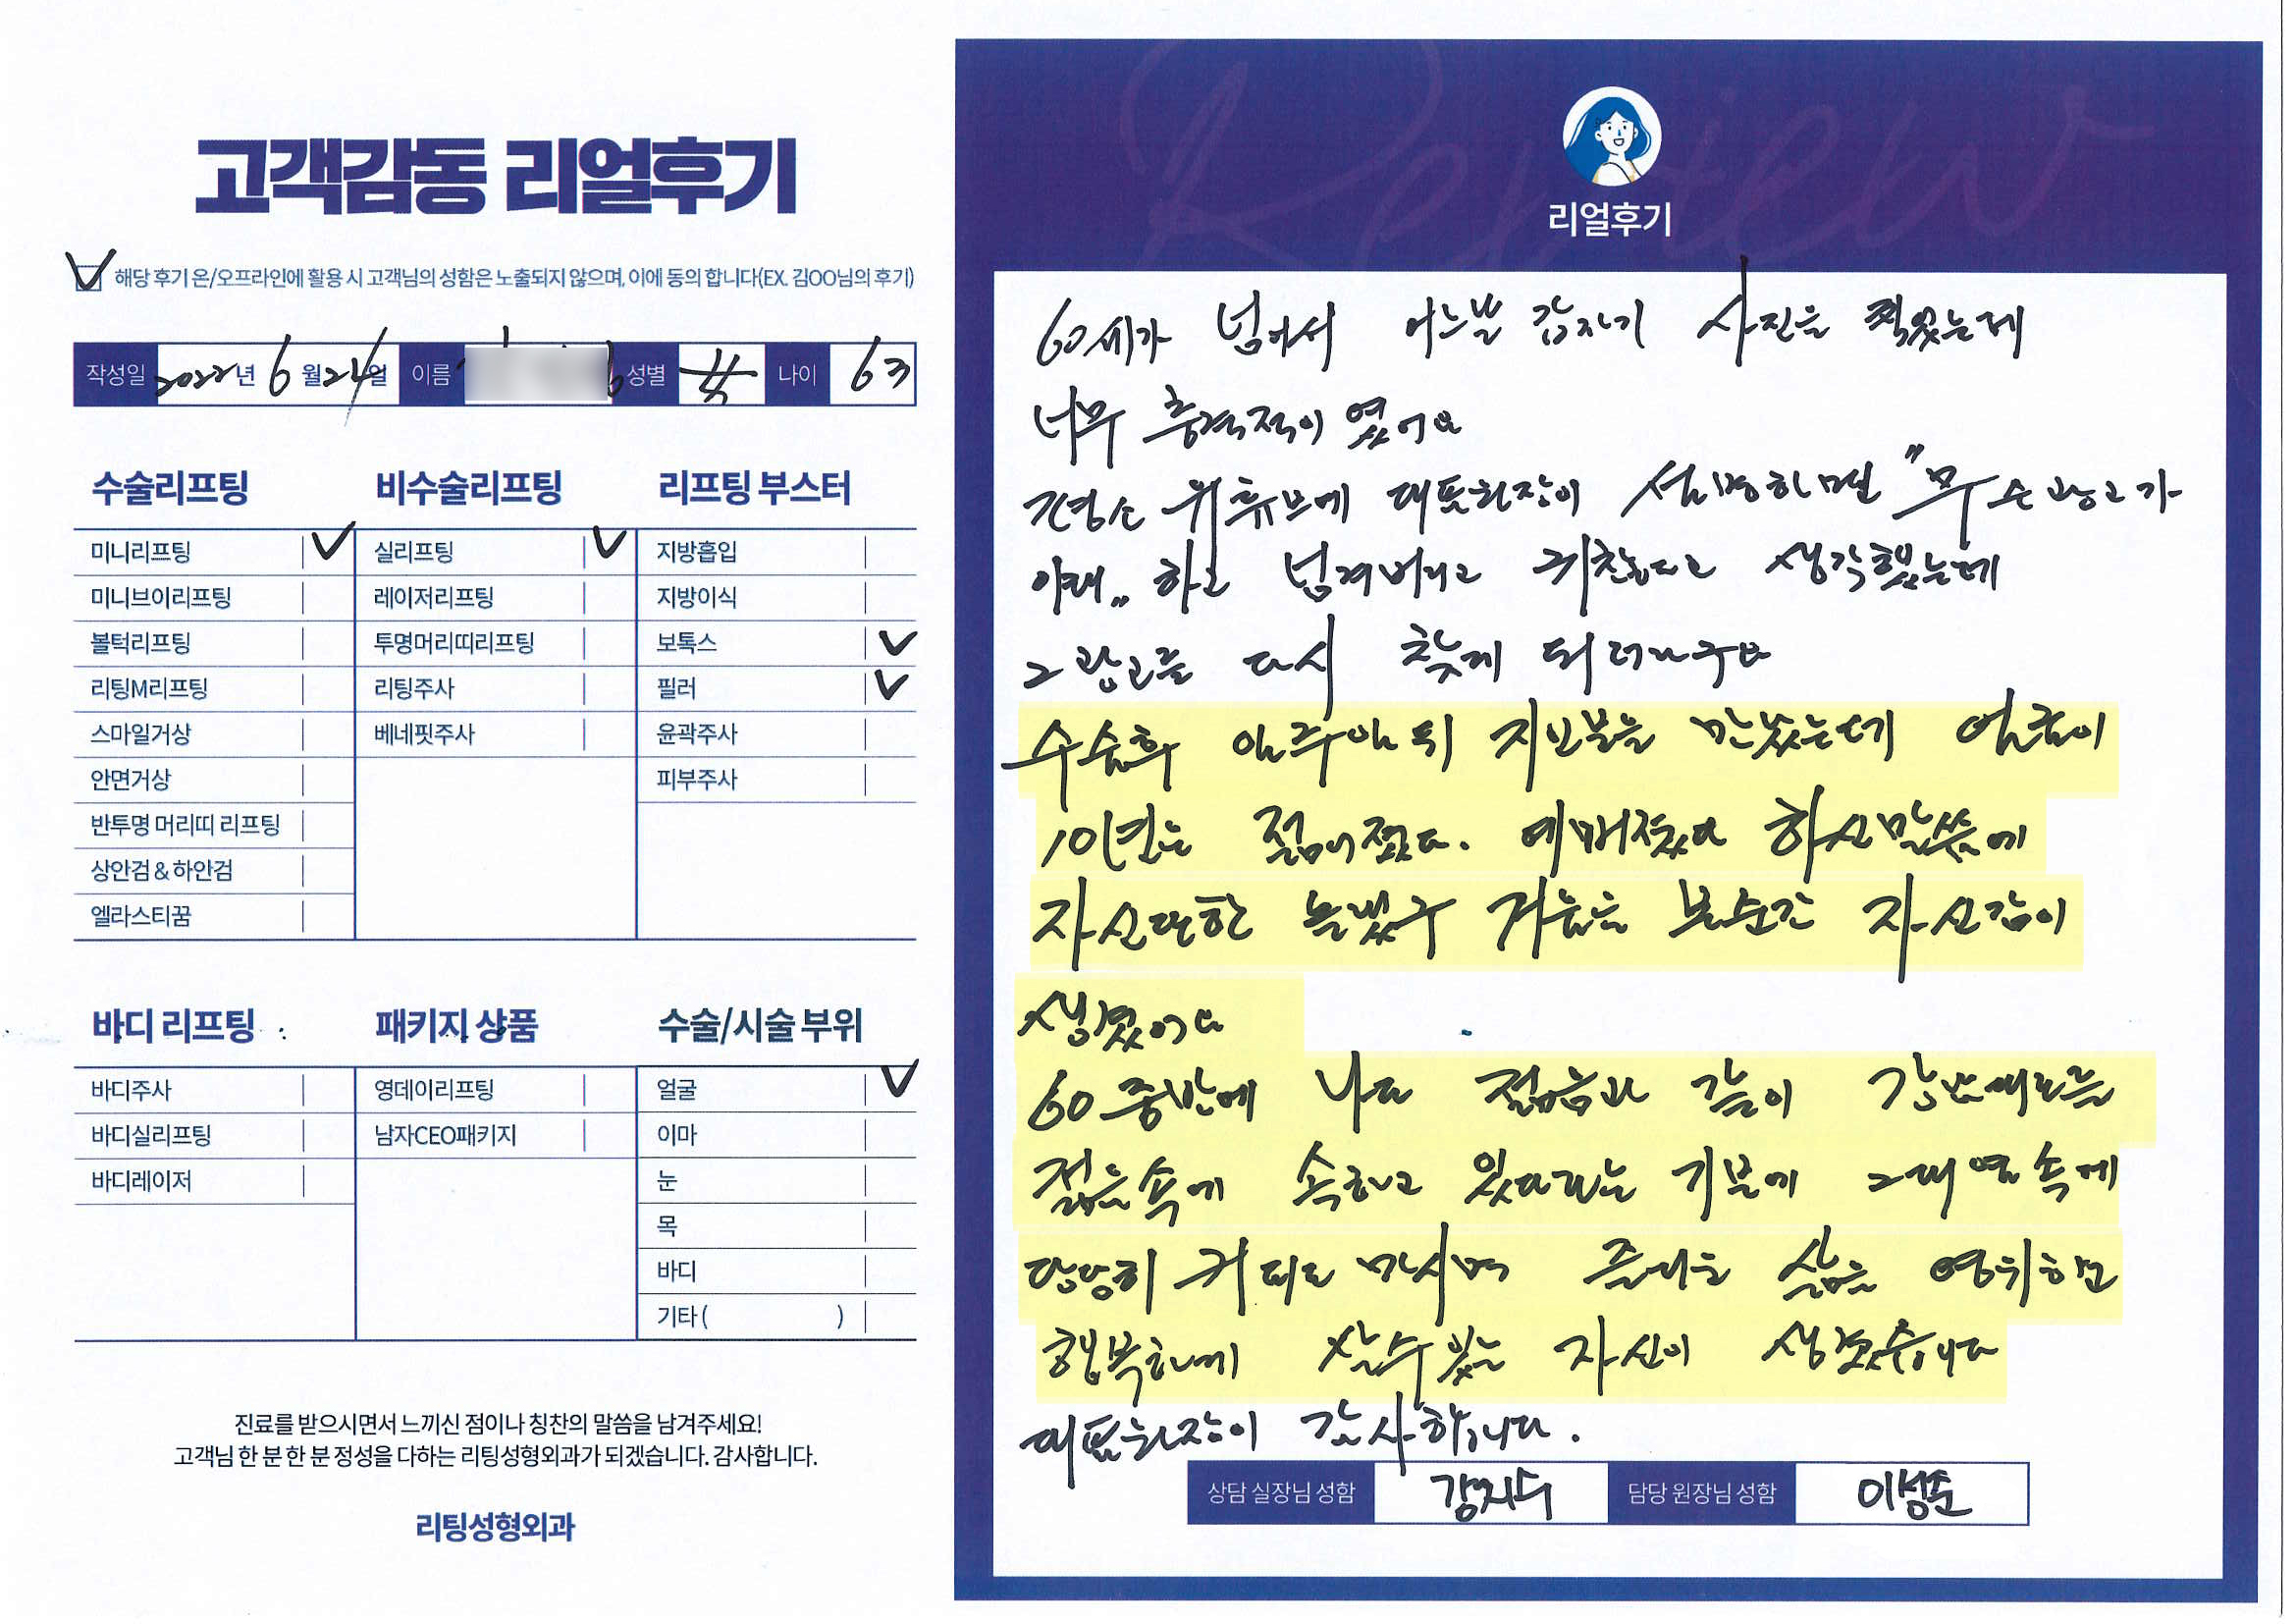 고객감동 리얼후기
해당 후기 온/오프라인에 활용 시 고객님의 성함은 노출되지 않으며, 이에 동의 합니다(EX. 김OO님의 후기)
작성일 2022년 6월 24일 이름 성별 女 나이 63
수술리프팅
미니리프팅
미니브이리프팅
볼턱리프팅
리팅M리프팅
스마일거상
안면거상
반투명 머리띠 리프팅
상안검 & 하안검
엘라스티꿈
비수술리프팅
실리프팅
레이저리프팅
투명머리띠리프팅
리팅주사
베네핏주사
리프팅 부스터
지방흡입
지방이식
보톡스
필러
윤곽주사
피부주사
바디 리프팅
바디주사
바디실리프팅
바디레이저
패키지 상품
영데이리프팅
남자CEO패키지
수술/시술 부위
얼굴
이마
눈
목
바디
기타( )
진료를 받으시면서 느끼신 점이나 칭찬의 말씀을 남겨주세요!
고객님 한 분 한 분 정성을 다하는 리팅성형외과가 되겠습니다. 감사합니다.
리팅성형외과
Review
리얼후기
60세가 넘어서 어느날 갑자기 사진을 찍었는데
너무 충격적이 였어요
평소 유튜브에 대표원장이 설명하면 "무슨 광고가
이래" 하고 넘겨버리고 귀찮다고 생각했는데
그 광고를 다시 찾게 되더라구요
수술후 일주일 뒤 지인분을 만났는데 얼굴이
10년은 젊어졌다. 예뻐졌다 하신말씀에
자신 한 놀랬구 거울을 본순간 자신감이
생겼어요
60중반에 나도 젊음과 같이 강남대로를
젊음속에 속하고 있다라는 기분에 그대열속에
당당히 커피도 마시며 즐거운 삶을 영위하고
행복하게 살수있는 자신이 생겼습니다
대표원장님 감사합니다.
상담 실장님 성함 강지수 담당 원장님 성함 이성준